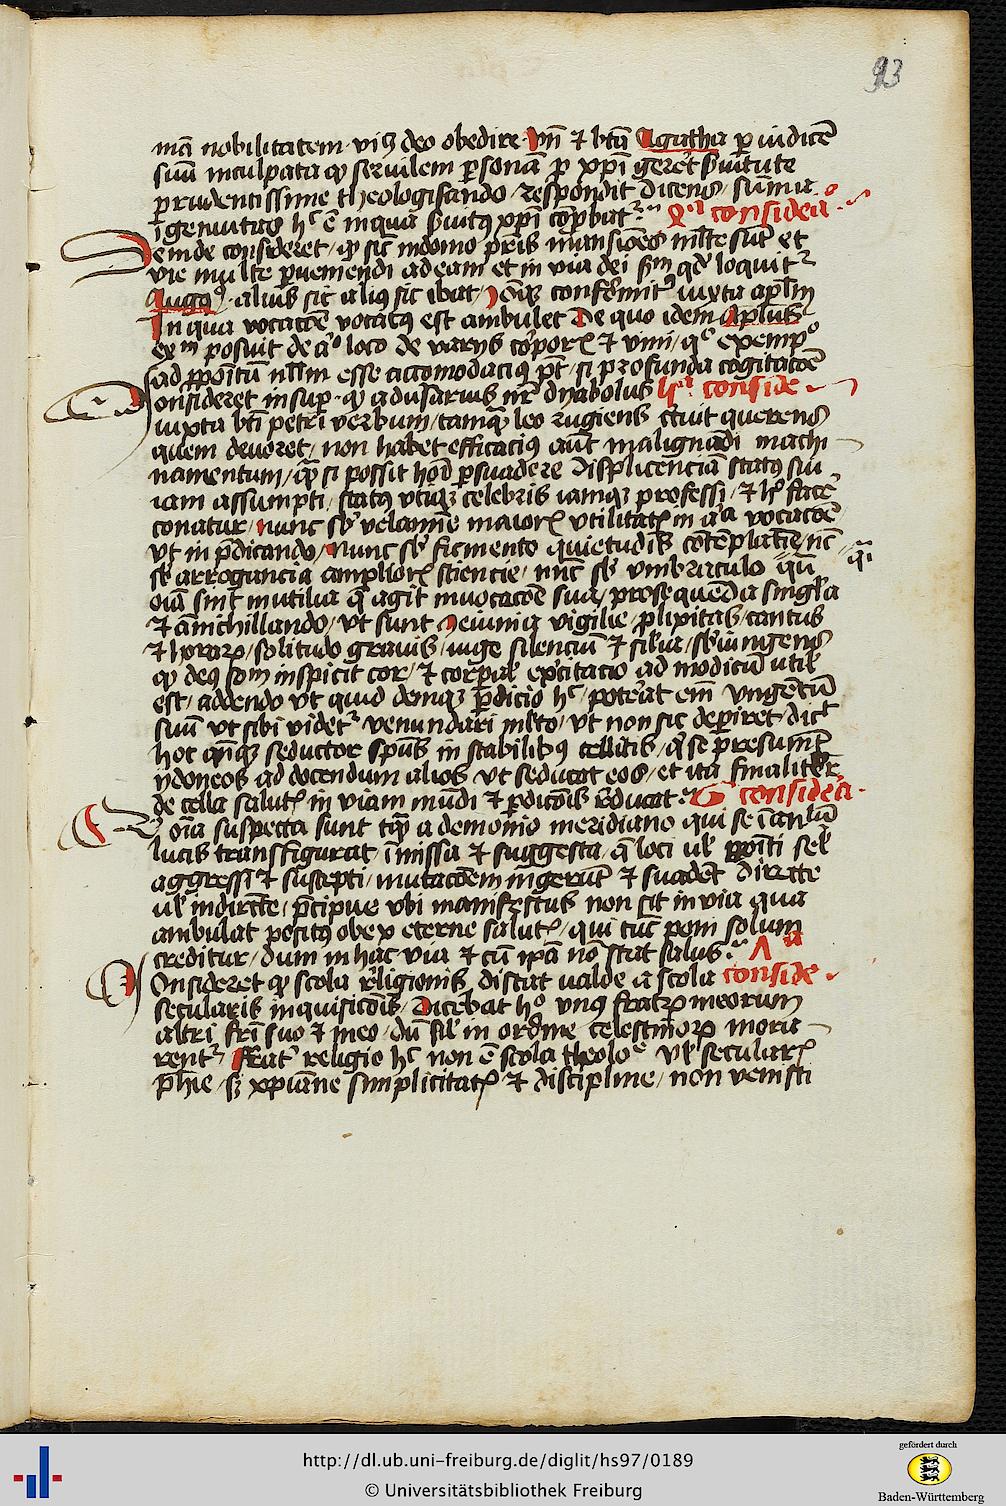 93
mcā nobilitatem viꝰ deo obedire Vn̄ ⁊ btā Agatha p iudicē
suū inculpata qꝫ seruilem psonā p xp̄i gerēt ẜuitute
prudentissime theologisando respondit dicens sūma
īgenuitas hᶜ ē in qua ẜuitꝰ xp̄i cōpbatᷣ 2ª consideᵃ
Deinde consideret qꝫ sic in domo pris mansiōes mlte sūt et
vie multe pueniendi ad eam et in via dei ẜm qd loquitᷣ
Augꝰ aliuis sic aliꝰ sic ibat confermitᷣ iuxta aplm
In qua vocatōe vocatꝰ est ambulet De quo idem Aplus
exm posuit de loco de varijs corporꝫ ⁊ vini qᵒ exempᵒ
ad ppoitū nllm esse accomodaciꝰ pt si profunda cogitacōe
Consideret insup qꝫ adusarius nr dyabolus conside
iuxta bti petri verbum tamqꝫ leo rugiens circuit querens
quem deuoret non habet efficaciꝰ aut malignādi machi
namentum qꝫ si possit hoīi psuadere displicenciā statꝰ sui
iam assumpti statꝰ vtiqꝫ celebris iamqꝫ professi ⁊ hᵒ facē
conatur nunc sb velamine maiorꝫ vtilitatꝫ in alia vocacōe
vt in pdicando nunc sb figmento quietudis cōtēplatiē nc̄
sb arrogancia ampliorꝫ sciencie nūc sb vmbraculo qm̄
oīa sint inutilia q̄ agit in uocacōe sua prosequēdia singla
⁊ ānichillando vt sunt Jeiunia vigilie plixitas cantus
⁊ horarꝫ solitudo grauis iuge silenciū ⁊ silia sbiungens
qꝫ deꝰ solum inspicit cor ⁊ corpal exercitatio ad modicū util
est addendo vt quid demqꝫ pdicio hᶜ poterat em̄ vngētū
suū vt sibi videtᷣ venundari mlto vt non sic depiret dict
hoc qn̄qꝫ seductor sp̄us instabilibꝰ cellitis q̄ se presumūt
ydoneos ad docendum alios vt seducat eos et ita finaliter
de cella salutꝫ in viam mūdi ⁊ pdicōis educat considea
oīa suspecta sunt tqꝫ a demonio meridiano qui se ī anlū
lucis transfigurat īmissa ⁊ suggesta q̄ loci ul ppoiti sel
aggressi ⁊ suscepti mutacōem ingerūt ⁊ suadēt directe
ul indirecte pcipue vbi manifestus non sit in via qua
ambulat positꝰ obex eterne salutꝫ qui tūc poni solum
creditur dum in hac via ⁊ cū ip̄a nō stat salus
Consideret qꝫ scola religionis distat ualde a scola conside
secularis inquisicōis Dicebat hᵒ vnꝰ fratrꝫ meorum
altri fri suo ⁊ meo dū sil in ordine celestinorꝫ mora
rentᷣ Frat religio hᶜ non ē scola theoloᵉ ul secularꝫ
phie sꝫ xpiane simplicitatꝫ ⁊ discipline non venisti
http://dl.ub.uni-freiburg.de/diglit/hs97/0189
© Universitätsbibliothek Freiburg
gefördert durch
Baden-Württemberg